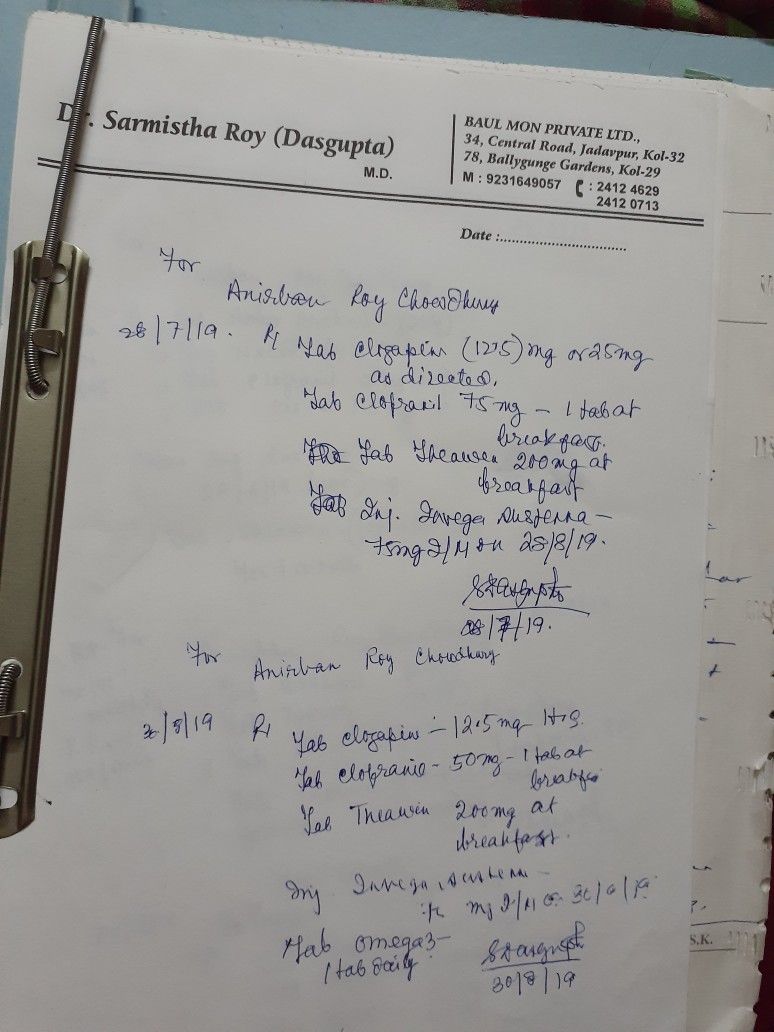 Dr. Sarmistha Roy (Dasgupta)
M.D.
BAUL MON PRIVATE LTD.,
34, Central Road, Jadavpur, Kol-32
78, Ballygunge Gardens, Kol-29
M : 9231649057 : 2412 4629
2412 0713
Date :................................
For
Anirban Roy Chowdhury
28/7/19. Rx Tab Clozapin (12.5) mg or 25mg
as directed.
Tab Clofranil 75mg – 1 tab at
breakfast.
Tab 200mg at
breakfast
Inj. Invega Sustenna –
75mg I/M on 28/8/19.
SDasgupta
28/7/19.
For
Anirban Roy Chowdhury
Rx Tab Clozapin – 12.5mg H.S.
Tab Clofranil – 50mg – 1 tab at
Tab 200mg at
breakfast.
Inj Invega Sustenna –
mg I/M on
Tab omega 3 –
1 tab daily
SDasgupta
30/8/19
S.K.